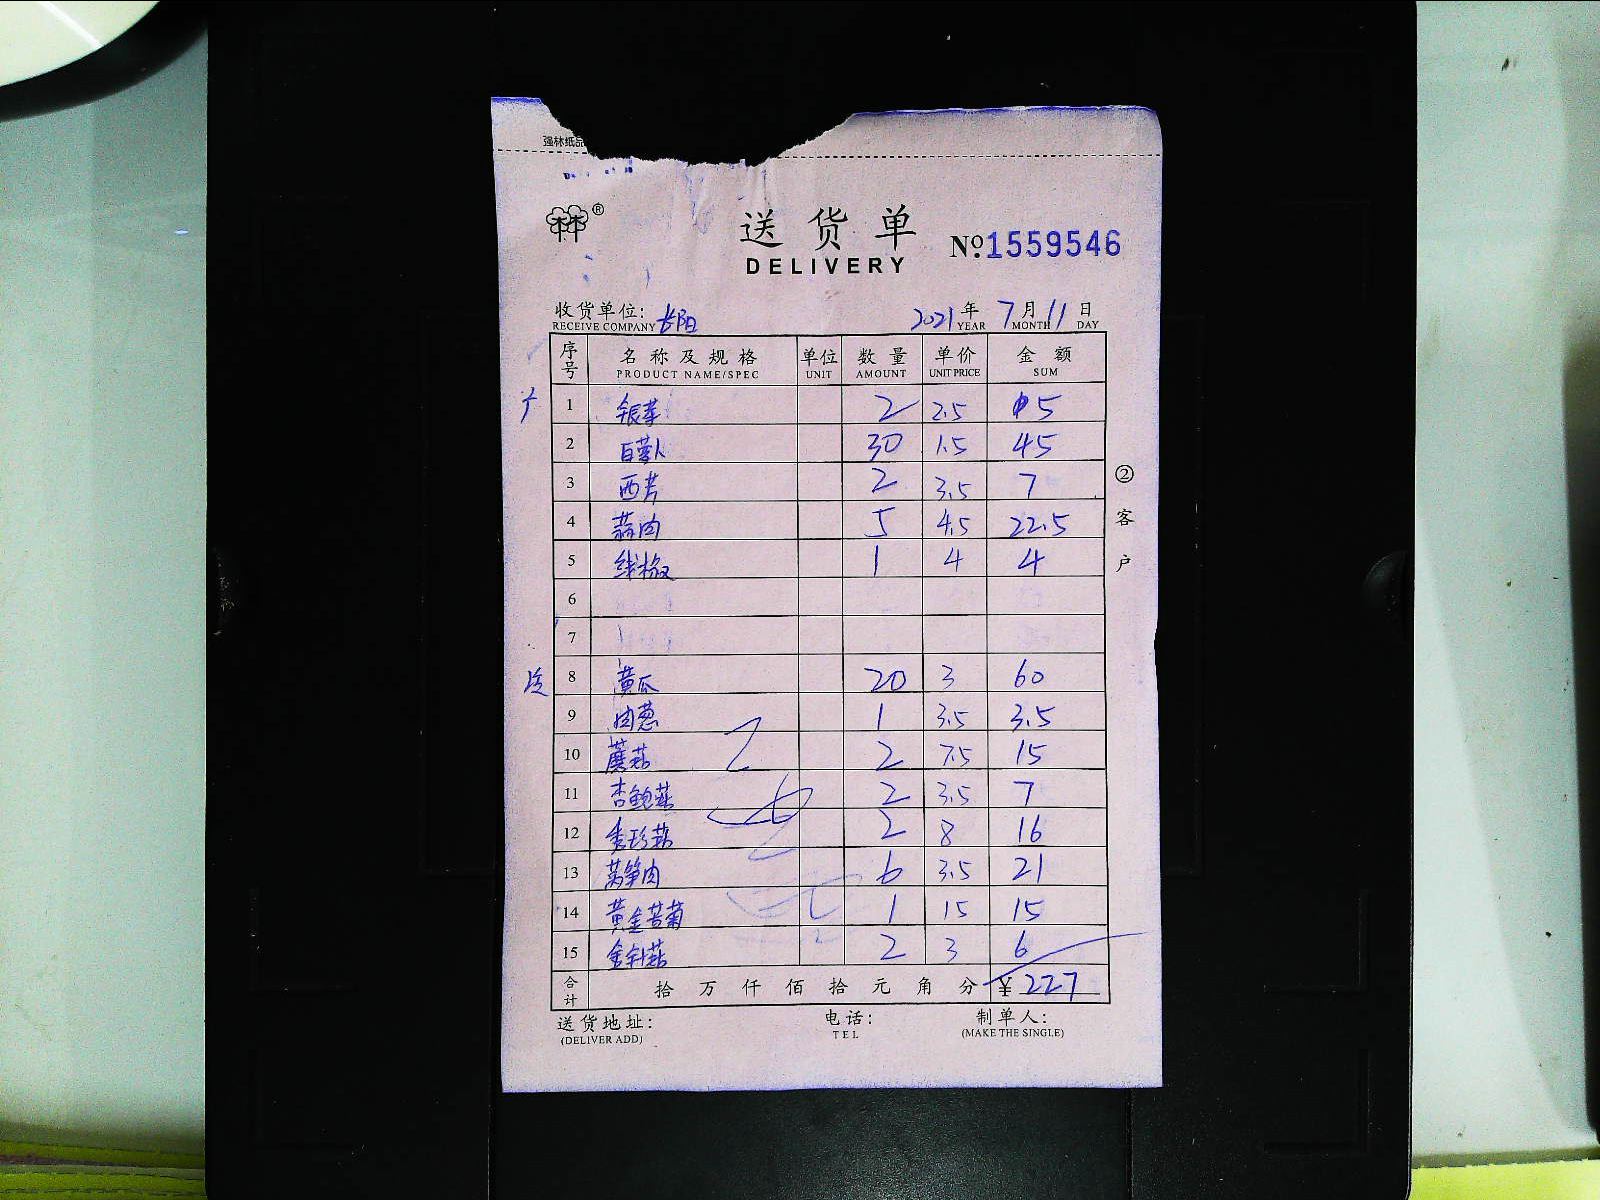 强林纸品
® 送货单 №1559546
DELIVERY
收货单位: 长阳 2021年 7月 11日
RECEIVE COMPANY YEAR MONTH DAY
序号 名称及规格 单位 数量 单价 金额
PRODUCT NAME/SPEC UNIT AMOUNT UNIT PRICE SUM
1 银芽 2 2.5 5
2 白萝卜 30 1.5 45
3 西芹 2 3.5 7
4 蒜肉 5 4.5 22.5
5 线椒 1 4 4
6
7
8 黄瓜 20 3 60
9 肉葱 1 3.5 3.5
10 蘑菇 2 7.5 15
11 杏鲍菇 2 3.5 7
12 秀珍菇 2 8 16
13 莴笋肉 6 3.5 21
14 黄金苦菊 1 15 15
15 金针菇 2 3 6
合计 拾万仟佰拾元角分 ¥227
②客户
送货地址: 电话: 制单人:
(DELIVER ADD) TEL (MAKE THE SINGLE)